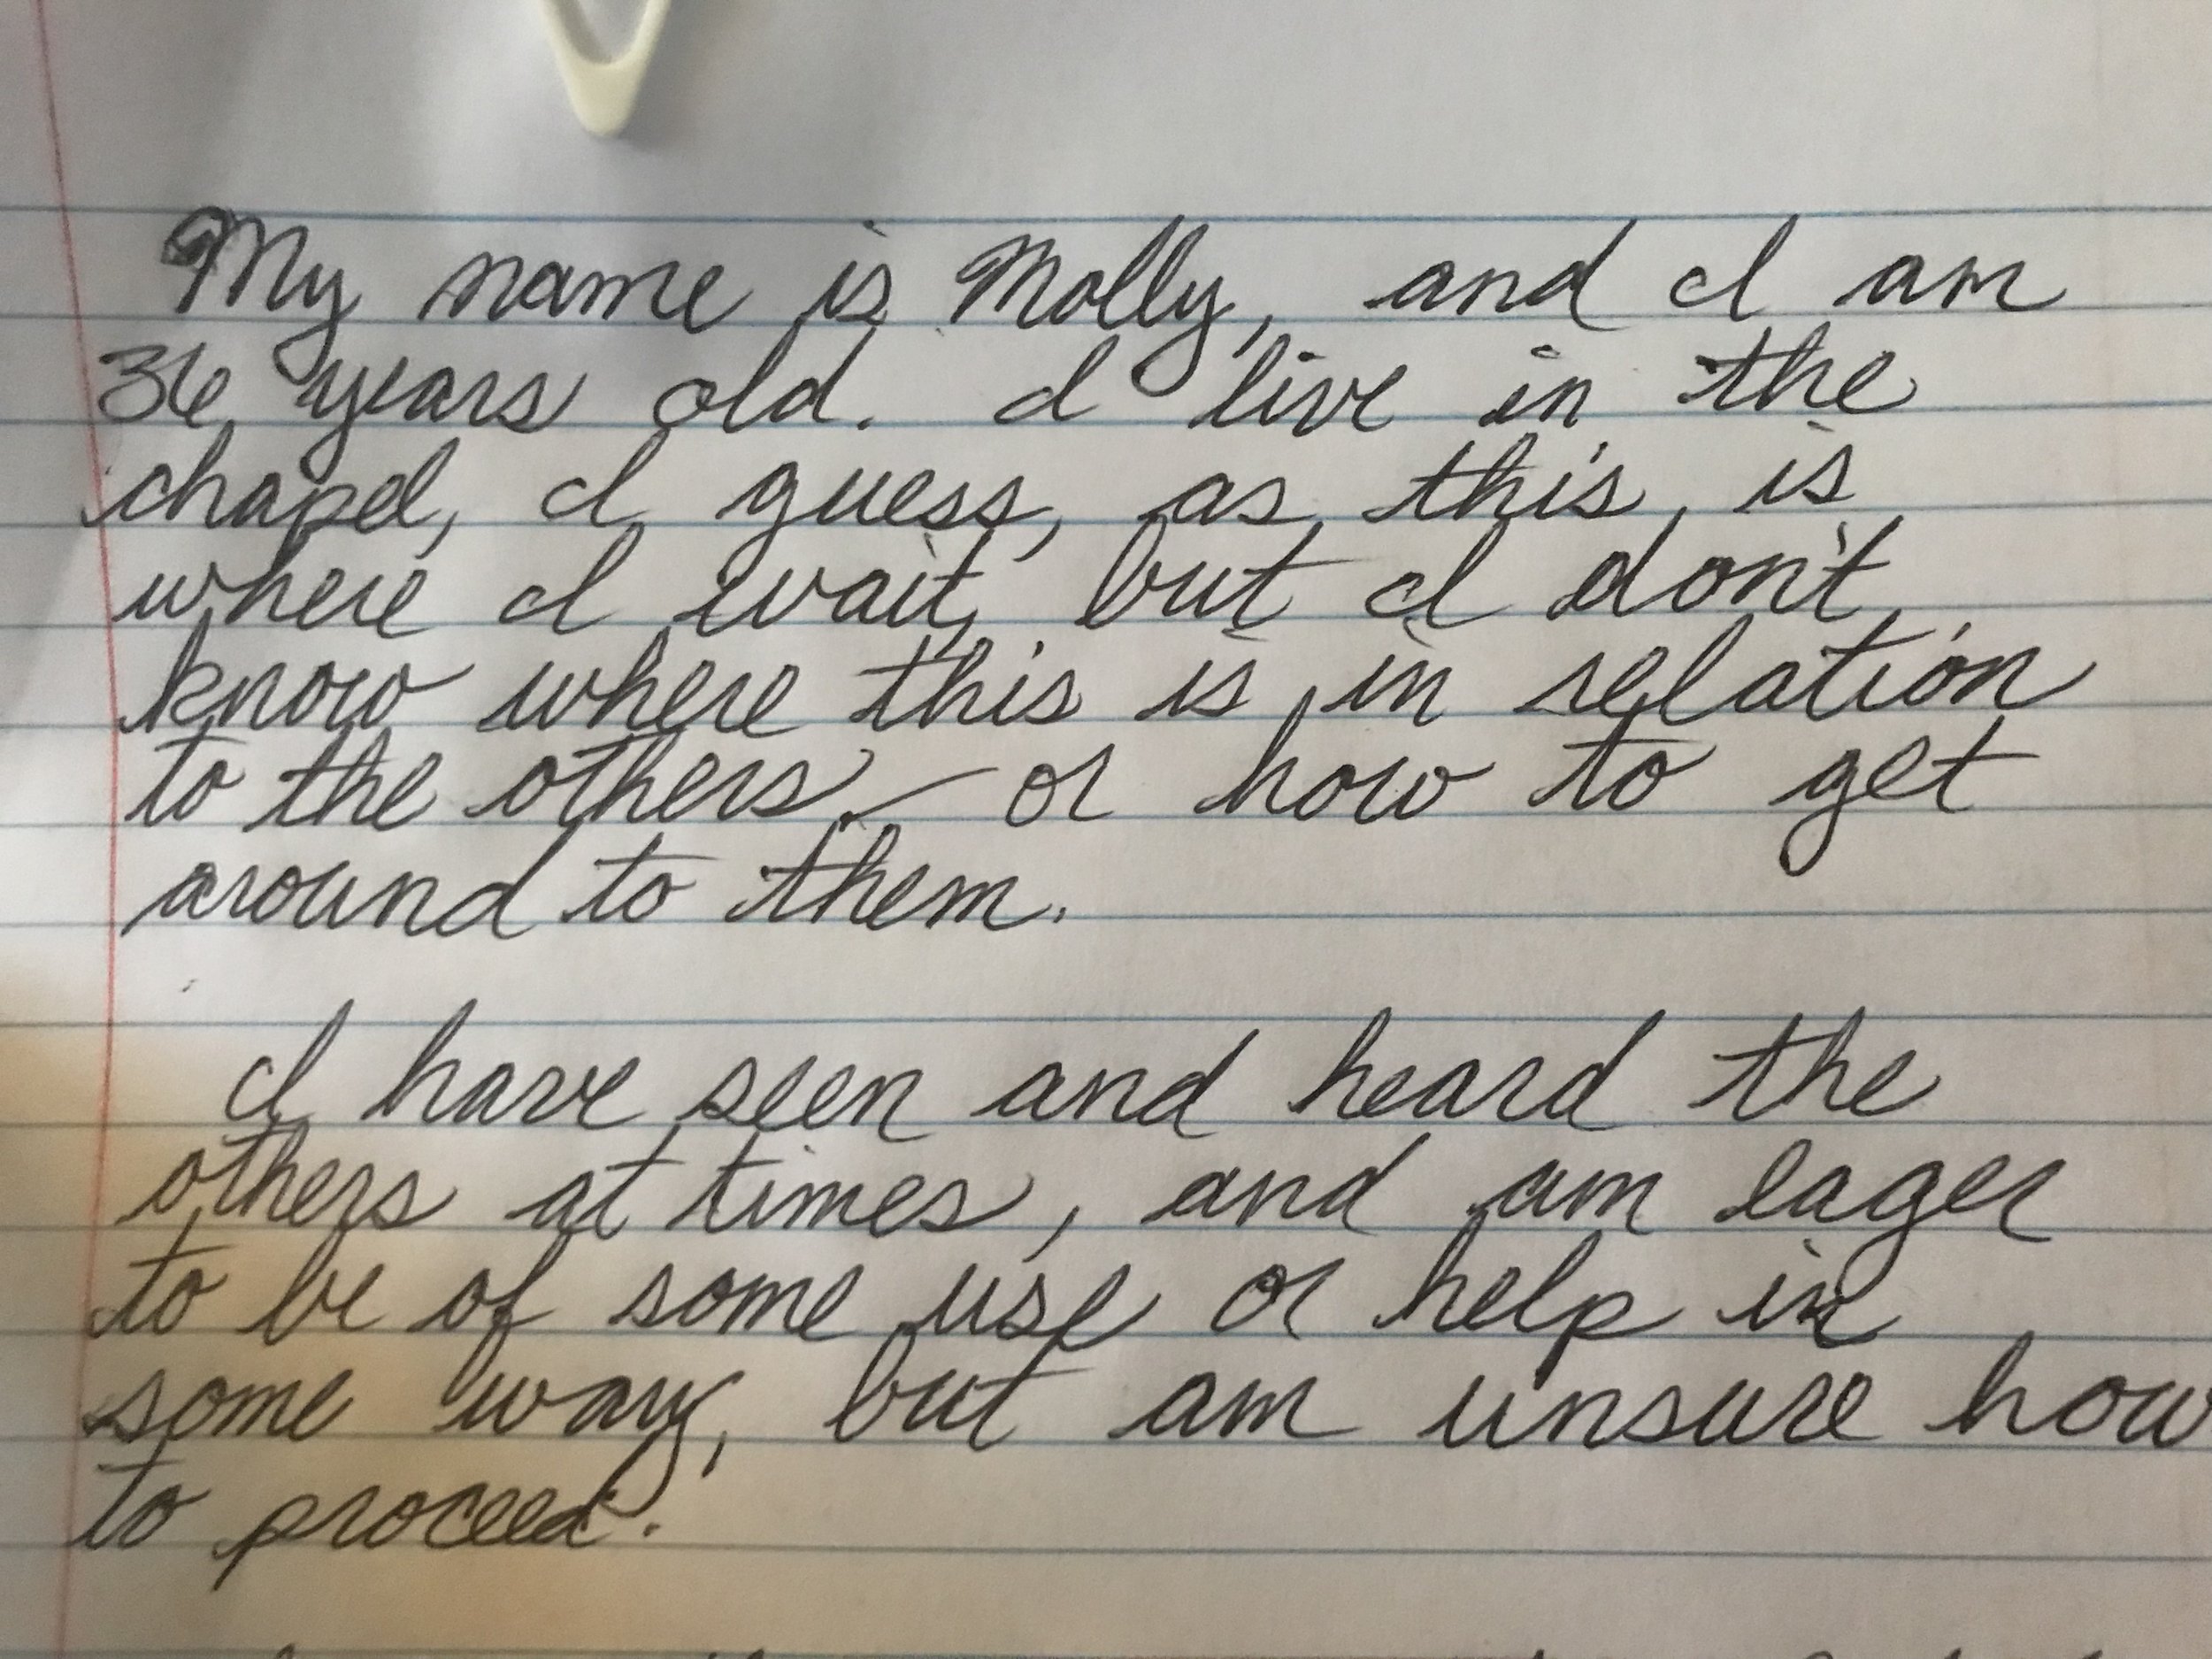 My name is Molly, and I am
36 years old. I live in the
chapel, I guess, as this is
where I wait, but I don't
know where this is in relation
to the others - or how to get
around to them.
I have seen and heard the
others at times, and am eager
to be of some use or help in
some way, but am unsure how
to proceed.